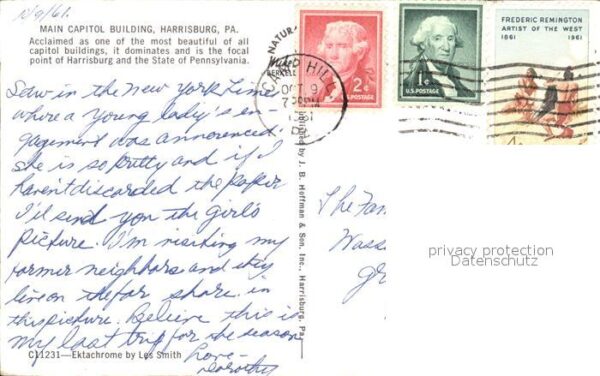 10/9/61.
MAIN CAPITOL BUILDING, HARRISBURG, PA.
Acclaimed as one of the most beautiful of all
capitol buildings, it dominates and is the focal
point of Harrisburg and the State of Pennsylvania.
Saw in the New York Times
where a young lady's en-
gagement was announced.
She is so pretty and if I
haven't discarded the paper
I'll send you the girl's
picture. I'm visiting my
former neighbors and they
live on the far shore in
this picture. Believe this is
my last trip for the season
Love -
Dorothy
C11231—Ektachrome by Les Smith
Published by J. B. Hoffman & Son, Inc., Harrisburg, Pa.
NATUR
BERKELEY
HILL
OCT 9
1961
2¢
U.S. POSTAGE
1¢
U.S. POSTAGE
FREDERIC REMINGTON
ARTIST OF THE WEST
1861 1961
The Fam
Wass
Gr
privacy protection
Datenschutz